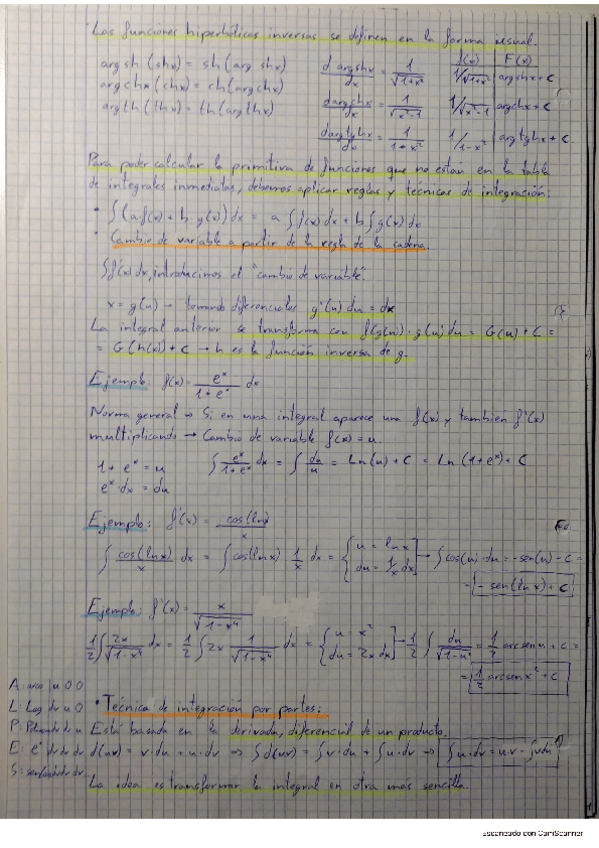 Las funciones hiperbólicas inversas se definen en la forma usual.
arg sh (shx) = sh (arg shx)    d argshx/dx = 1/√(1+x²)    f(x) | F(x)
1/√(1+x²) | argshx + C
arg chx (chx) = ch (arg chx)    d argchx/dx = 1/√(x²-1)    1/√(x²-1) | argchx + C
argth (thx) = th (arg thx)    d argtghx/dx = 1/(1+x²)    1/(1-x²) | argtghx + C
Para poder calcular la primitiva de funciones que no están en la tabla
de integrales inmediatas, debemos aplicar reglas y técnicas de integración:
• ∫(a f(x) + b g(x)) dx = a ∫f(x) dx + b ∫g(x) dx
• Cambio de variable a partir de la regla de la cadena.
∫f(x) dx, introducimos el "cambio de variable".
x = g(u) → tomando diferenciales g'(u) du = dx
La integral anterior se transforma con f(g(u)) · g'(u) du = G(u) + C =
= G(h(x)) + C → h es la función inversa de g.
Ejemplo: f(x) = e^x/(1+e^x) dx
Norma general → Si en una integral aparece una f(x) y tambien f'(x)
multiplicando → Cambio de variable f(x) = u.
1 + e^x = u    ∫ e^x/(1+e^x) dx = ∫ du/u = Ln(u) + C = Ln(1+e^x) + C
e^x · dx = du
Ejemplo: f'(x) = cos(lnx)/x
∫ cos(lnx)/x dx = ∫cos(lnx) 1/x dx = {u = lnx, du = 1/x dx} → ∫cos(u) · du = -sen(u) - C =
= -sen(lnx) + C
Ejemplo: f'(x) = x/√(1-x⁴)
1/2 ∫ 2x/√(1-x⁴) dx = 1/2 ∫2x 1/√(1-x⁴) dx = {u = x², du = 2x dx} → 1/2 ∫ du/√(1-u²) = 1/2 arcsen u + C =
= 1/2 arcsen x² + C
A: arco | u
• Técnica de integración por partes:
L: Log
P: Está basada en la derivada, diferencial de un producto.
E: e^x d(uv) = v·du + u·dv ⇒ ∫d(uv) = ∫v·du + ∫u·dv ⇒ ∫u·dv = u·v - ∫vdu
S: La idea es transformar la integral en otra más sencilla.
Escaneado con CamScanner